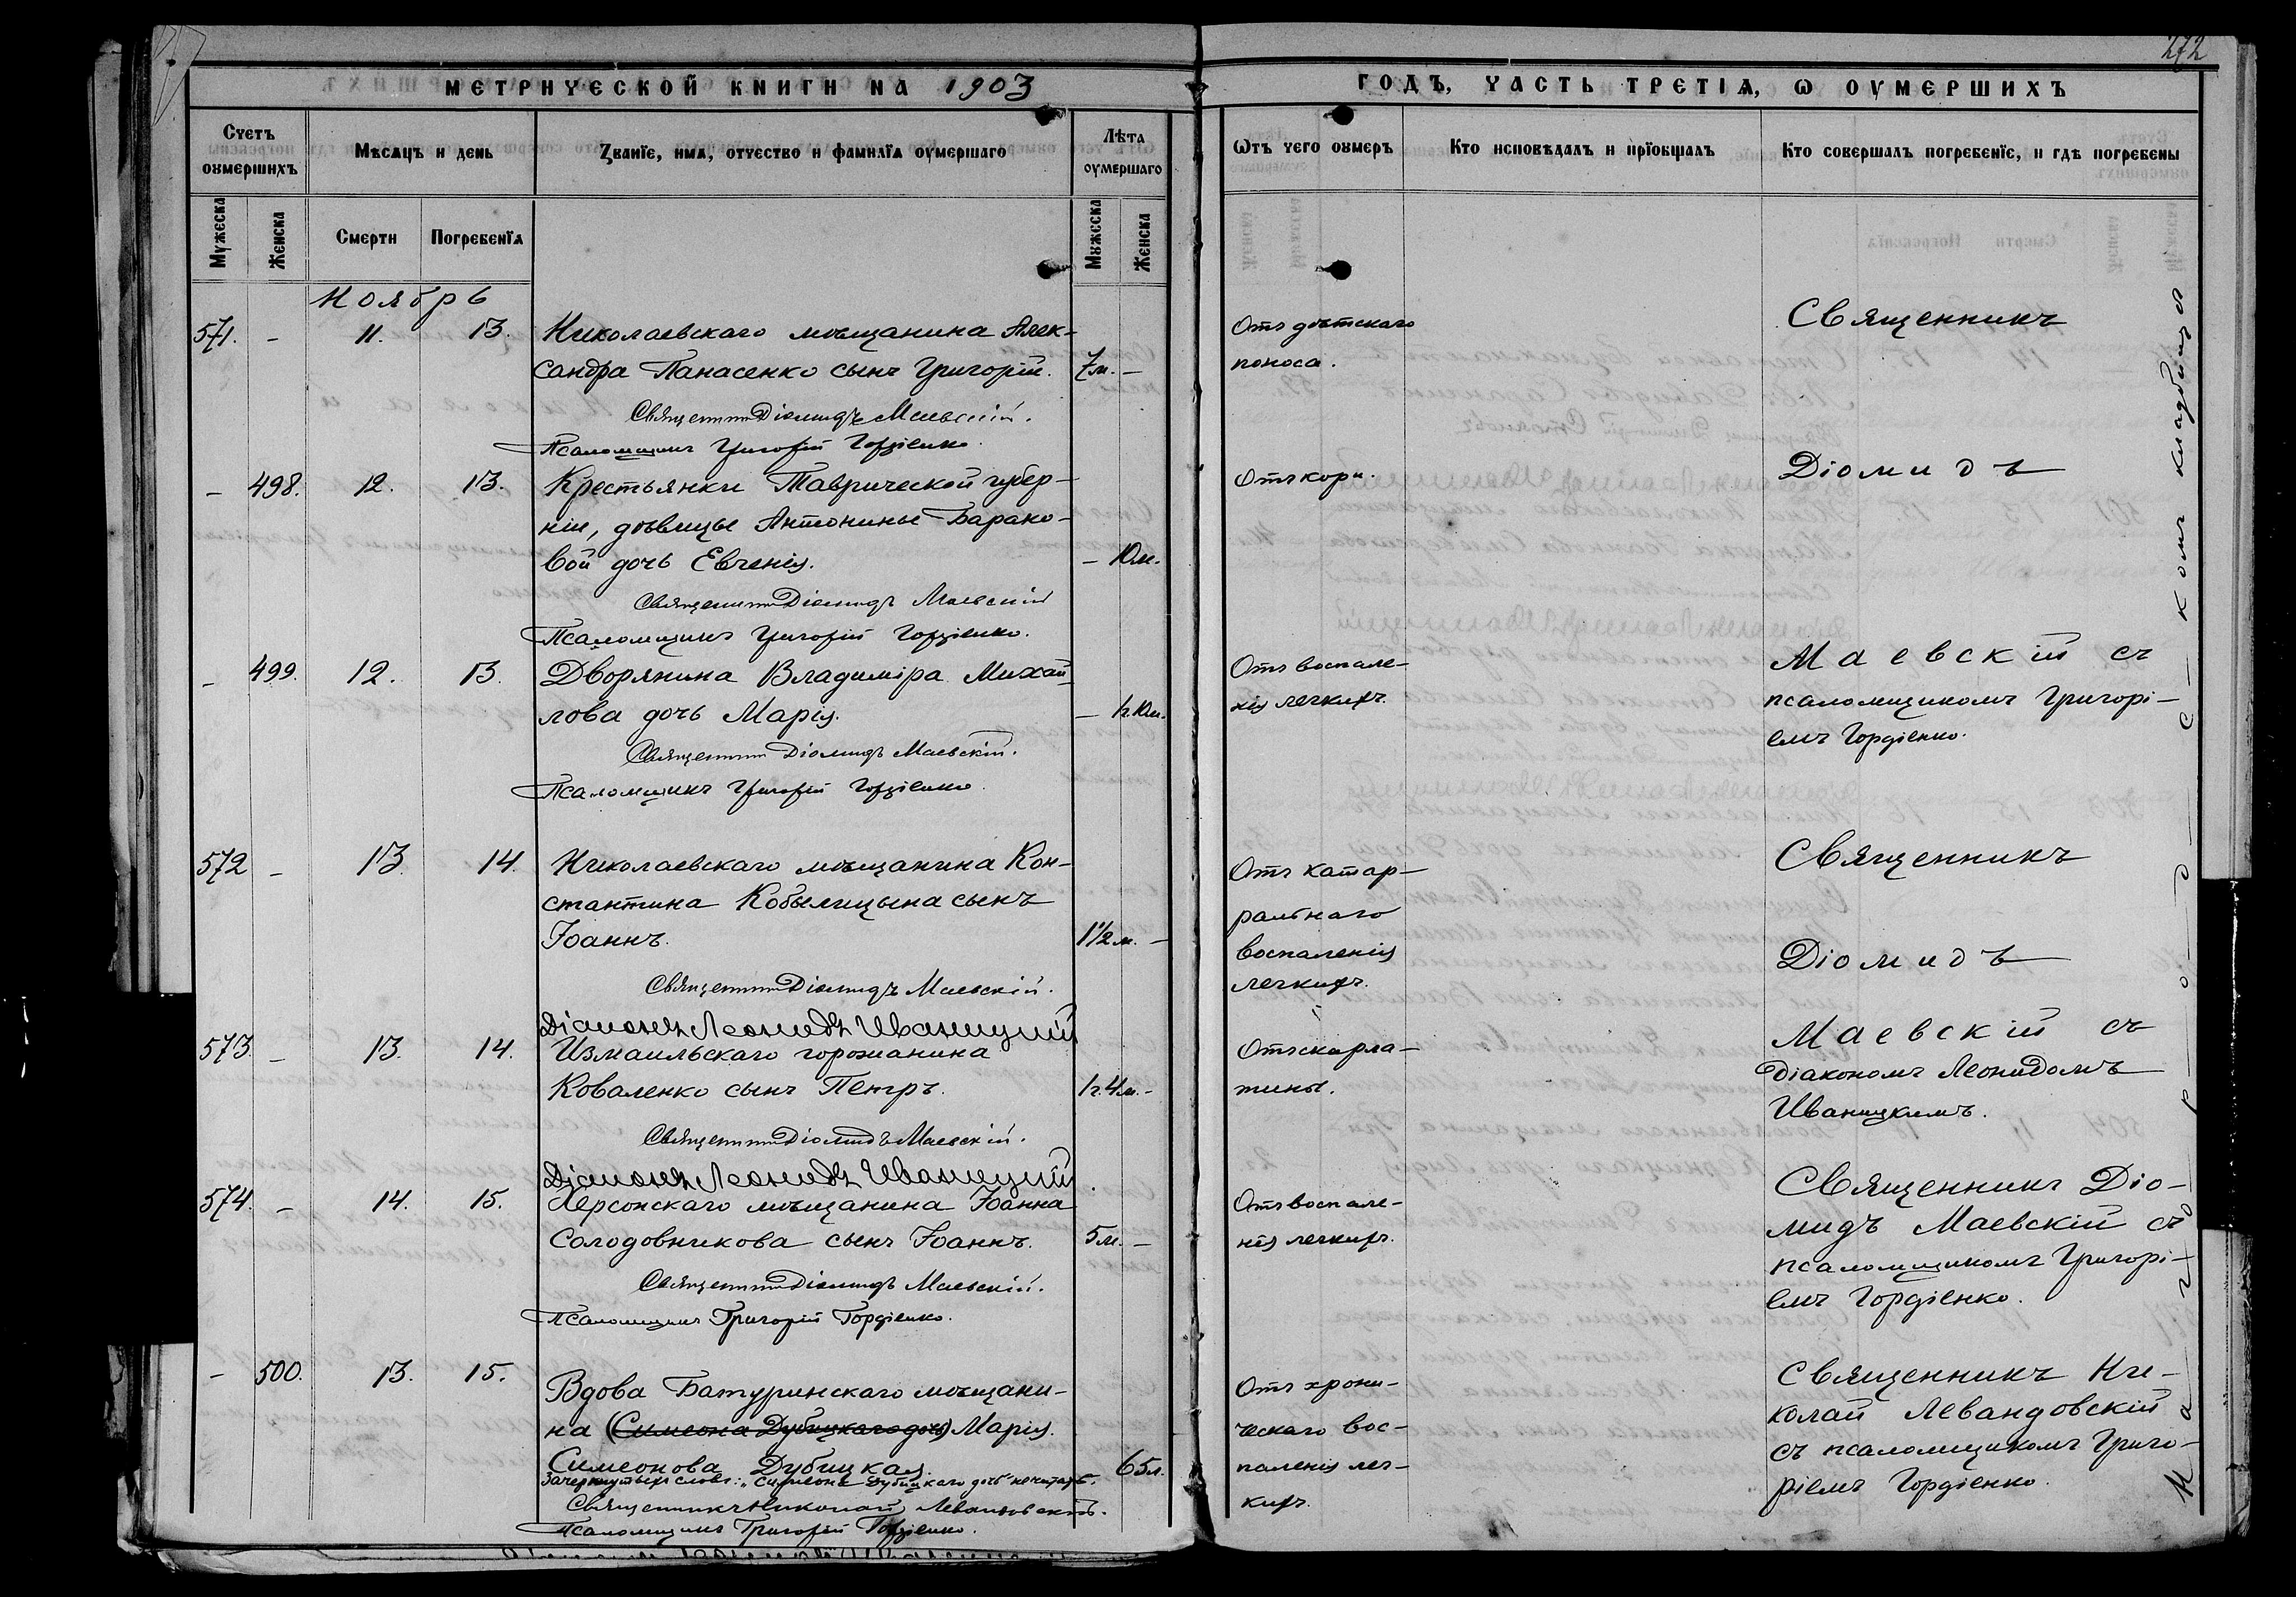 272
МЕТРИЧЕСКОЙ КНИГИ НА 1903
ГОДЪ, ЧАСТЬ ТРЕТІѦ, Ѡ ОУМЕРШИХЪ
Счетъ оумершихъ
Мѣсѧцъ и день
Званїе, имѧ, отчество и фамилїѧ оумершаго
Лѣта оумершаго
Ѿтъ чего оумеръ
Кто исповѣдалъ и прїобщалъ
Кто совершалъ погребенїе, и гдѣ погребены
Мужеска
Женска
Смерти
Погребенїѧ
Мужеска
Женска
Ноябрь
571. - 11. 13. Николаевскаго мѣщанина Алек-
сандра Панасенко сынъ Григорій. 7 м. -
Священникъ Діомидъ Маевскій.
Псаломщикъ Григорій Гордіенко.
Отъ дѣтскаго
поноса.
Священникъ
- 498. 12. 13. Крестьянки Таврической губер-
ніи, дѣвицы Антонины Барано-
вой дочь Евгенія. - 10 м.
Священникъ Діомидъ Маевскій
Псаломщикъ Григорій Гордіенко.
Отъ кори.
Діомидъ
- 499. 12. 13. Дворянина Владиміра Михай-
лова дочь Марія. - 1 г. 10 м.
Священникъ Діомидъ Маевскій.
Псаломщикъ Григорій Гордіенко
Отъ воспале-
нія легкихъ.
Маевскій съ
псаломщикомъ Григорі-
емъ Гордіенко.
572 - 13. 14. Николаевскаго мѣщанина Кон-
стантина Кобылицына сынъ
Іоаннъ. 1 1/2 м. -
Священникъ Діомидъ Маевскій.
Діаконъ Леонидъ Иваницкій
Отъ катар-
ральнаго
воспаленія
легкихъ.
Священникъ
Діомидъ
573 - 13. 14. Измаильскаго горожанина
Коваленко сынъ Петръ. 1 г. 4 м. -
Священникъ Діомидъ Маевскій.
Діаконъ Леонидъ Иваницкій
Отъ скарла-
тины.
Маевскій съ
діакономъ Леонидомъ
Иваницкимъ.
574. - 14. 15. Херсонскаго мѣщанина Іоанна
Солодовникова сынъ Іоаннъ. 5 м. -
Священникъ Діомидъ Маевскій.
Псаломщикъ Григорій Гордіенко.
Отъ воспале-
нія легкихъ.
Священникъ Діо-
мидъ Маевскій съ
псаломщикомъ Григорі-
емъ Гордіенко.
- 500. 13. 15. Вдова Батуринскаго мѣщани-
на (Симеона Дубицкаго дочь) Марія
Симеонова Дубицкая. 65 л.
Зачеркнутыхъ словъ: „Симеона Дубицкаго дочь" не читать.
Священникъ Николай Левандовскій.
Псаломщикъ Григорій Гордіенко.
Отъ хрони-
ческаго вос-
паленія лег-
кихъ.
Священникъ Ни-
колай Левандовскій
съ псаломщикомъ Григо-
ріемъ Гордіенко.
На городскомъ кладбищѣ